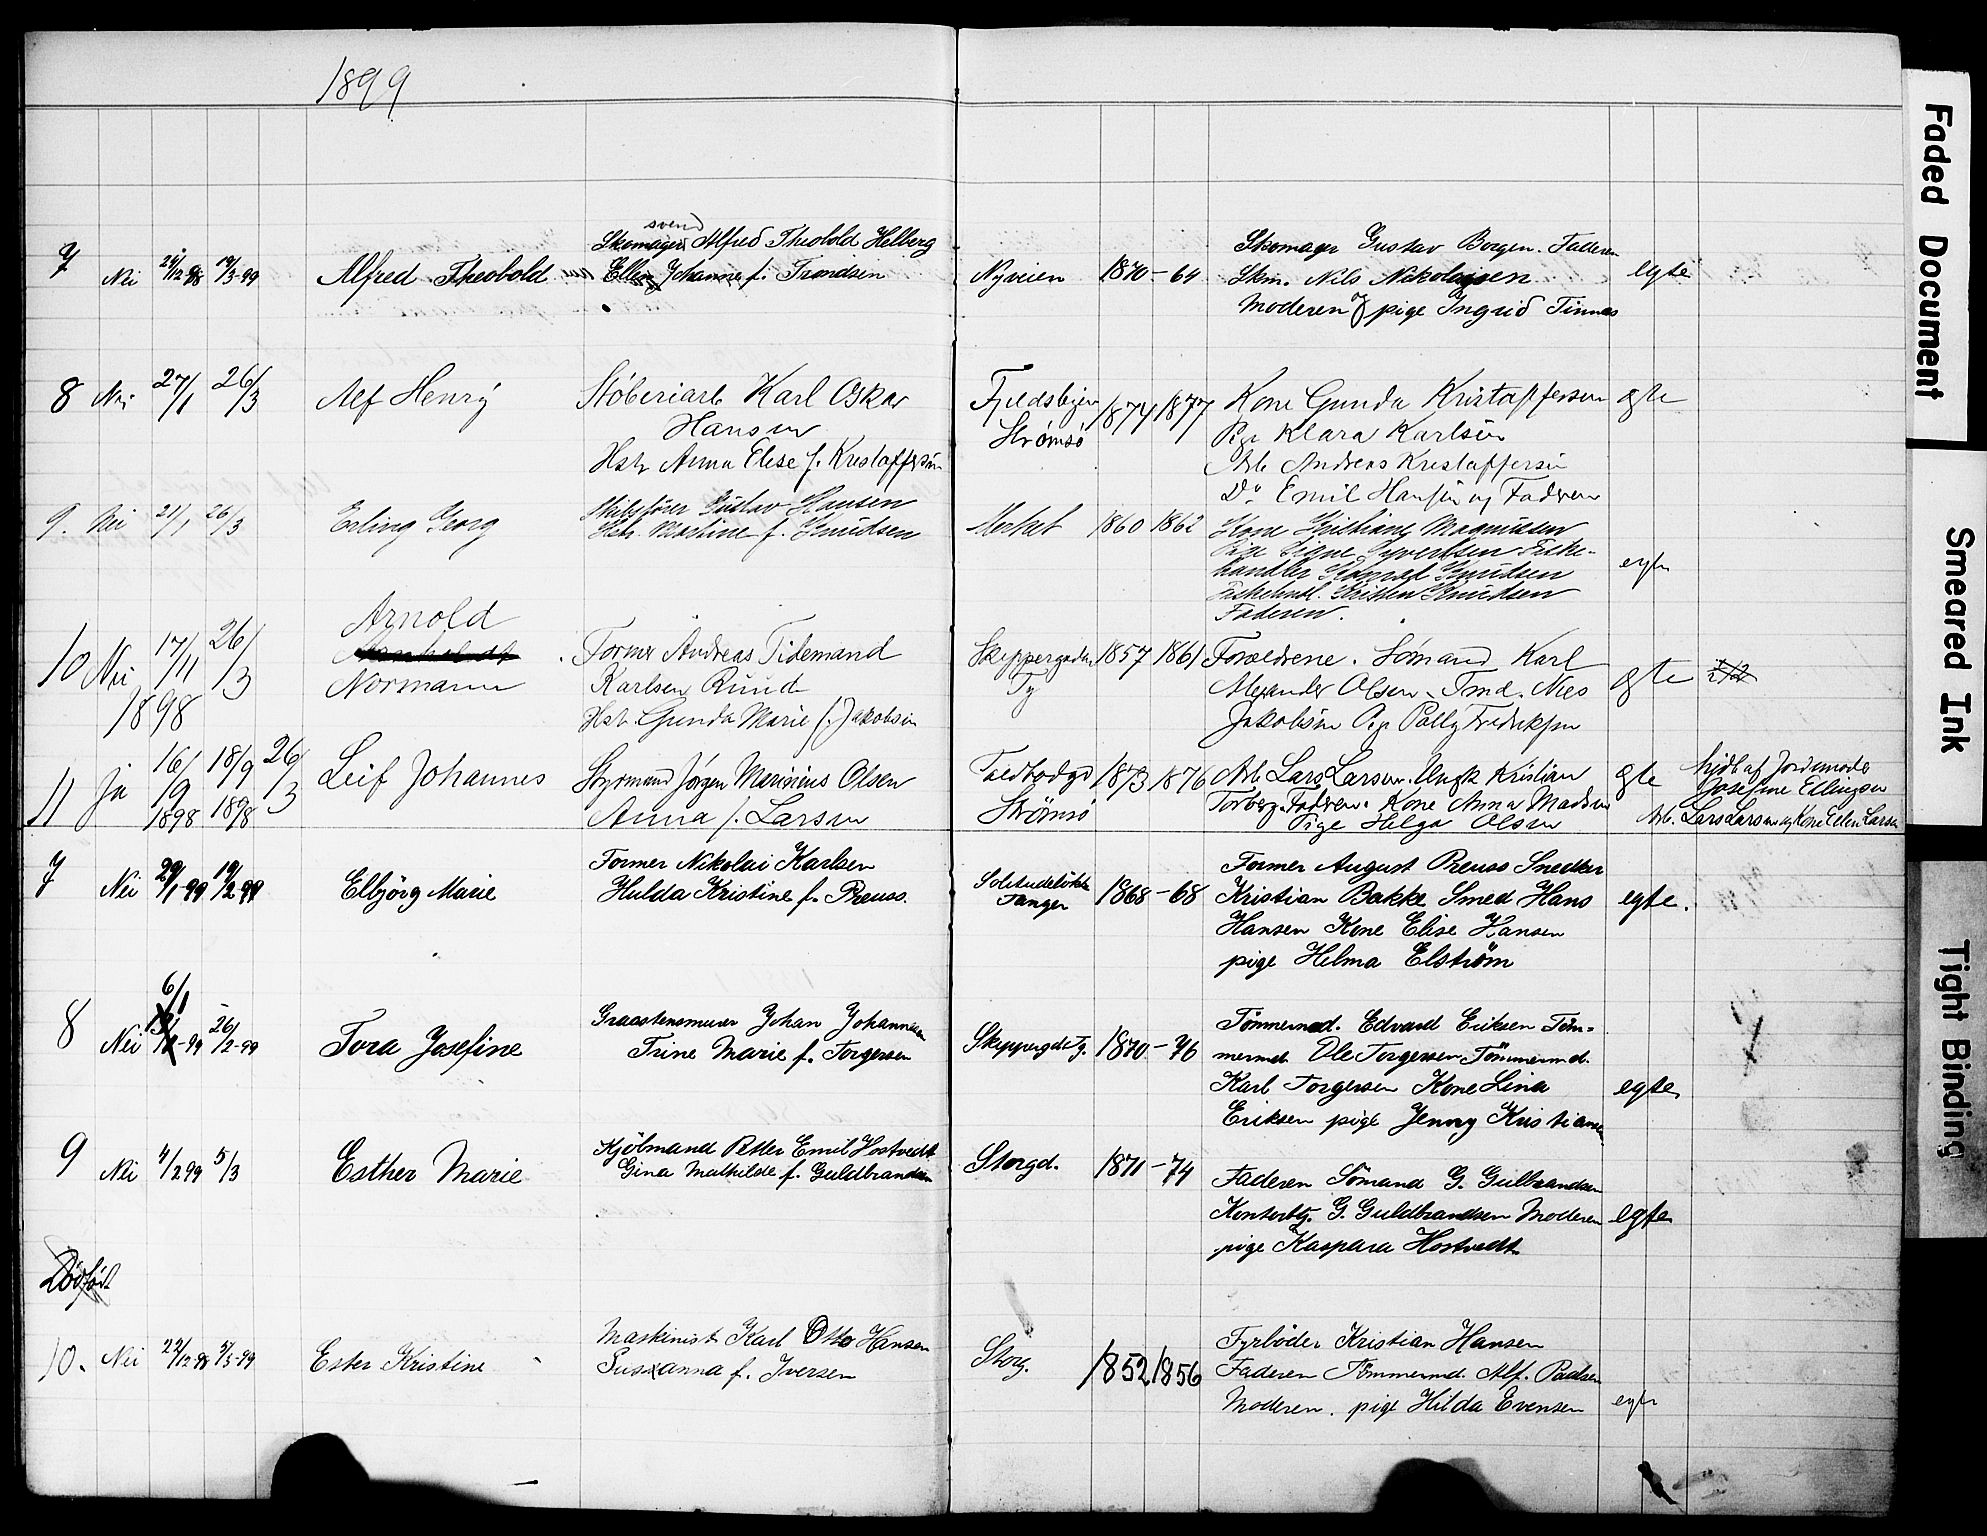 1899
7 Nei 24/12 98 19/3-99 Alfred Theobold
svend
Skomager Alfred Theobold Helberg
Ellen Johanne f. Trondsen
Nyveien 1870-64
Skomager Gustav Borgen. Faderen
Skm. Nils Nikolaysen
Moderen og pige Ingrid Finnæs
egte
8 Nei 27/1 26/3 Alf Henry
Støberiarb Karl Oskar
Hansen
Hstr Anna Elise f. Kristoffersen
Fjeldsbyen
Strømsø
1874 1877
Kone Gunda Kristoffersen
Pige Klara Karlsen
Arb. Andreas Kristoffersen
Do Emil Hansen og Faderen
egte
9. Nei 21/1 26/3 Erling Georg
Gustav Hansen
Hstr. Martine f. Knudsen
1860 1862
Kone Kristiane Magnussen
Pige Signe Syvertsen Fiske-
handler Konrad Knudsen
Fiskehndl. Kristen Knudsen
Faderen.
egte
10 Nei 17/11 1898 26/3
Arnold
Normann
Former Andreas Tidemand
Karlsen Ruud
Hstr. Gunda Marie f. Jakobsen
Skippergaden
Tg
1857 1861
Forældrene. Sømand Karl
Alexander Olsen. Tmd. Nils
Jakobsen Pige Polly Fredriksen
egte
11 Ja 16/9 1898 18/9 1898 26/3
Leif Johannes
Styrmand Jørgen Marinius Olsen
Anna f. Larsen
Toldbodgd
Strømsø
1873 1876
Arb Lars Larsen. Ungk Kristian
Torberg. Faderen. Kone Anna Madsen
Pige Helga Olsen
egte
hjdb af Jordemoder
Josefine Ellingsen
Arb. Lars Larsen og Kone Elen Larsen
7 Nei 29/1-99 19/2-99 Elbjörg Marie
Former Nikolai Karlsen
Hulda Kristine f. Preuss.
Solitudeløkka
Tangen
1868-68
Former August Preuss Snedker
Kristian Bakke Smed Hans
Hansen Kone Elise Hansen
pige Helma Elström
egte.
8 Nei 6/1 -99 26/2-99 Tora Josefine
Graastensmurer Johan Johannesen
Trine Marie f. Torgersen
Skippergdt Tg. 1870-76
Tömmermd. Edvard Eriksen Töm-
mermd. Ole Torgersen Tömmermd.
Karl Torgersen Kone Lina
Eriksen pige Jenny Kristiansen
egte
9 Nei 4/2 99 5/3 Esther Marie
Kjölmand Petter Emil Hostvedt
Gina Mathilde f. Guldbrandsen
Storgd. 1871-74
Faderen Sömand G. Gulbrandsen
Kontorbtj. G. Guldbrandsen Moderen
pige Kaspara Hostvedt
egte
Dödfödt
10. Nei 22/12-98 5/3-99 Ester Kristine
Maskinist Karl Otto Hansen
Susanna f. Iversen
Storg. 1852 1856
Fyrböder Kristian Hansen
Faderen Tömmermd. Alf. Paulsen
Moderen. pige Hilda Evensen
egte
Faded Document
Smeared Ink
Tight Binding